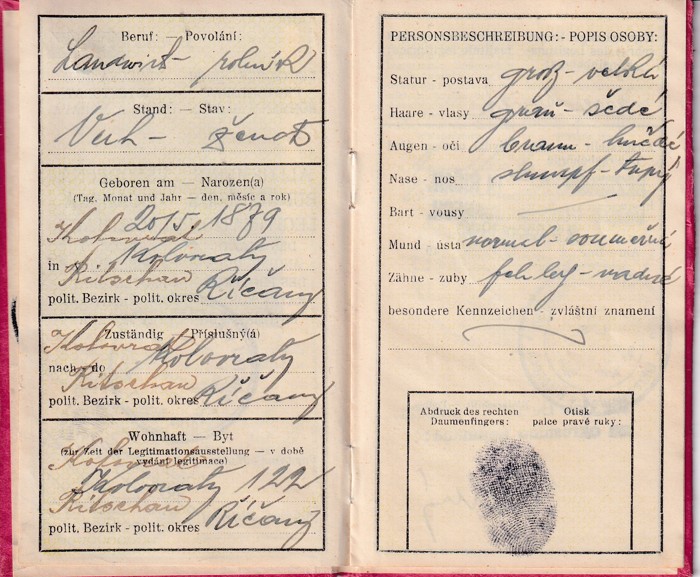 Beruf: — Povolání:
Landwirt - rolník
Stand: — Stav:
Verh - ženat
Geboren am — Narozen(a)
(Tag. Monat und Jahr — den, měsíc a rok)
20/5. 1879
Kolowrat
in Kolovraty
Ritschan
polit. Bezirk - polit. okres Říčany
Zuständig — Příslušný(á)
Kolovrat
nach - do Kolovraty
Ritschan
polit. Bezirk - polit. okres Říčany
Wohnhaft — Byt
(zur Zeit der Legitimationsausstellung — v době
vydání legitimace)
Kolovraty 122
Ritschan
polit. Bezirk - polit. okres Říčany
PERSONSBESCHREIBUNG: - POPIS OSOBY:
Statur - postava groß - velká
Haare - vlasy grau - šedé
Augen - oči braun - hnědé
Nase - nos stumpf - tupý
Bart - vousy —
Mund - ústa normal - souměrná
Zähne - zuby fehler - vadné
besondere Kennzeichen - zvláštní znamení
Abdruck des rechten Daumenfingers: Otisk palce pravé ruky: